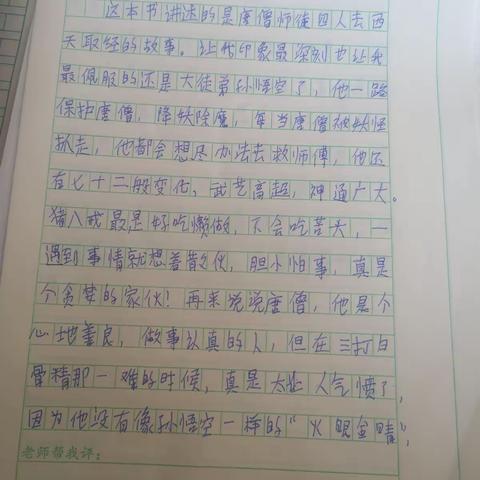 这本书讲述的是唐僧师徒四人去西
天取经的故事。让我印象最深刻也让我
最佩服的还是大徒弟孙悟空了，他一路
保护唐僧，降妖除魔，每当唐僧被妖怪
抓走，他都会想尽办法去救师傅，他还
有七十二般变化，武艺高超，神通广大。
猪八戒最是好吃懒做，不会吃苦大，一
遇到事情就想着散伙，胆小怕事，真是
个贪婪的家伙！再来说说唐僧，他是个
心地善良，做事认真的人，但在三打白
骨精那一难的时候，真是太让人气愤了，
因为他没有像孙悟空一样的“火眼金睛”，
老师帮我评：